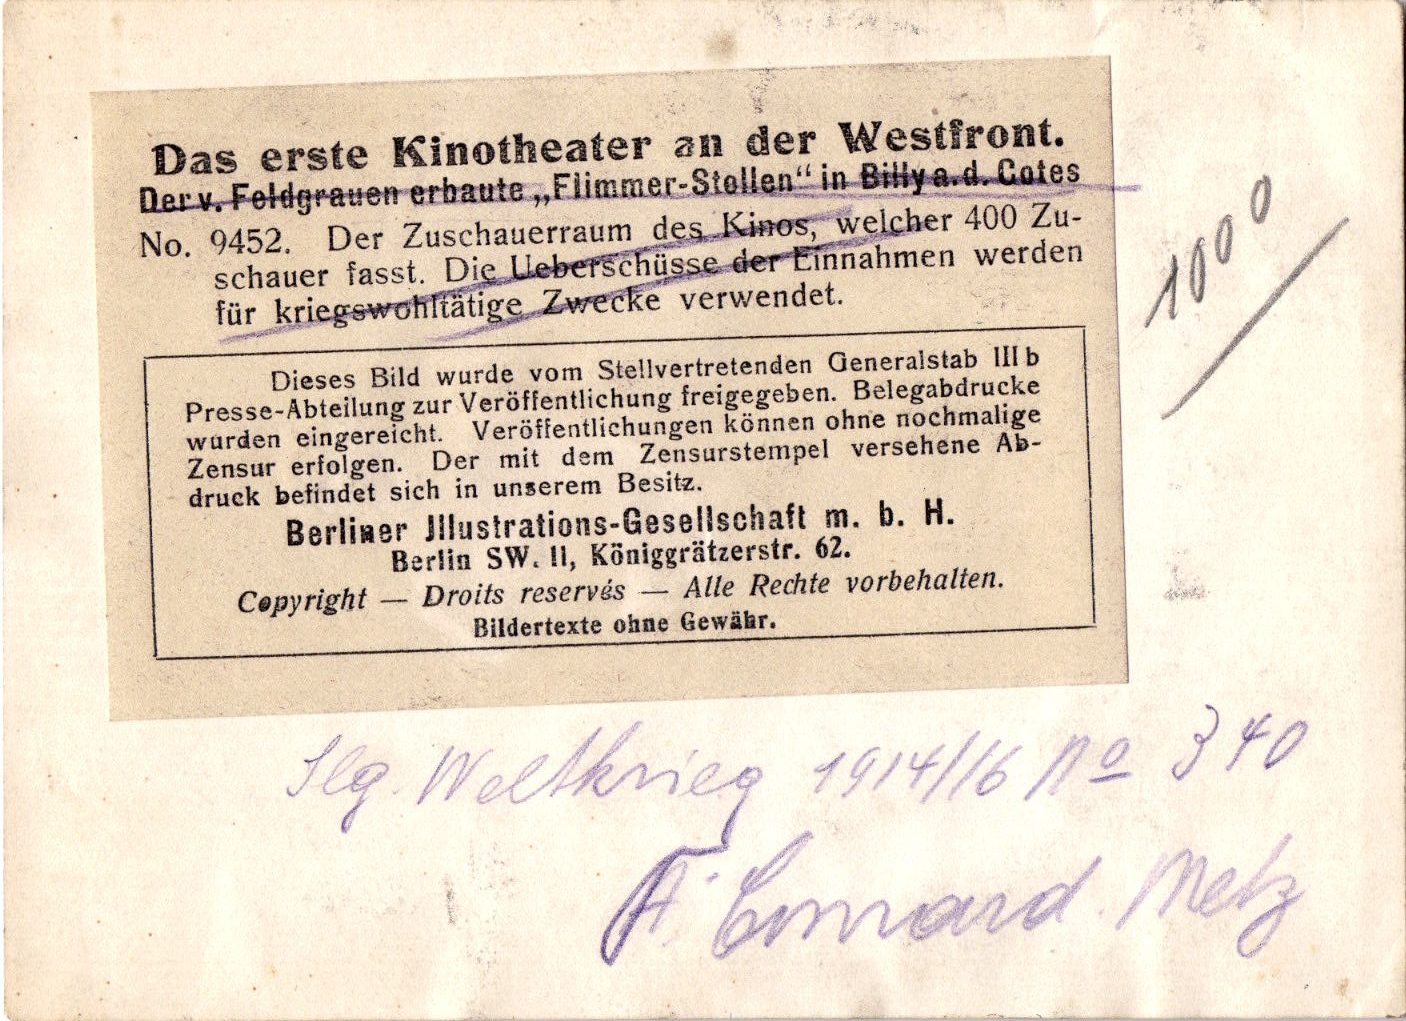 Das erste Kinotheater an der Westfront.
Der v. Feldgrauen erbaute „Flimmer-Stollen“ in Billy a. d. Cotes
No. 9452. Der Zuschauerraum des Kinos, welcher 400 Zu-
schauer fasst. Die Ueberschüsse der Einnahmen werden
für kriegswohltätige Zwecke verwendet.
1000
Dieses Bild wurde vom Stellvertretenden Generalstab III b
Presse-Abteilung zur Veröffentlichung freigegeben. Belegabdrucke
wurden eingereicht. Veröffentlichungen können ohne nochmalige
Zensur erfolgen. Der mit dem Zensurstempel versehene Ab-
druck befindet sich in unserem Besitz.
Berliner Jllustrations-Gesellschaft m. b. H.
Berlin SW. 11, Königgrätzerstr. 62.
Copyright — Droits reservés — Alle Rechte vorbehalten.
Bildertexte ohne Gewähr.
Slg. Weltkrieg 1914/16 No 340
A. Conrard. Metz